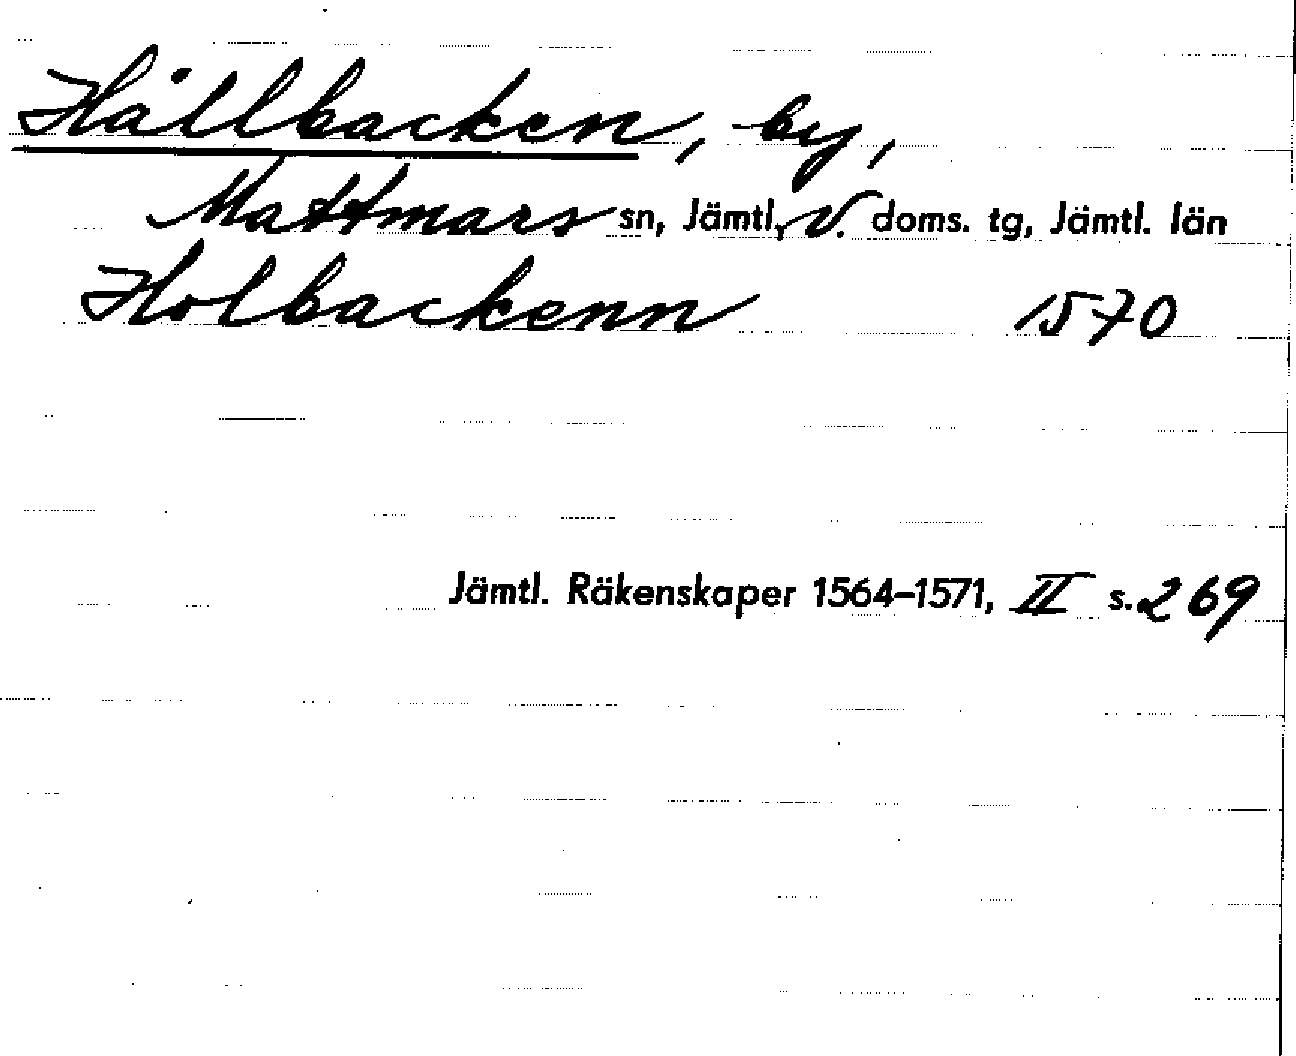 Hållbacken, by,
Mattmars sn, Jämtl., V. doms. tg, Jämtl. län
Holbackenn 1570
Jämtl. Räkenskaper 1564–1571, II s. 269